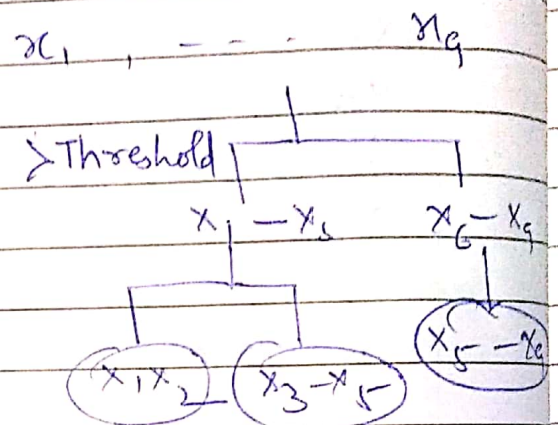 x₁, - - - . x₉
>Threshold
x₁ - x₅ x₆ - x₉
x₁x₂ x₃-x₅ x₅--x₉